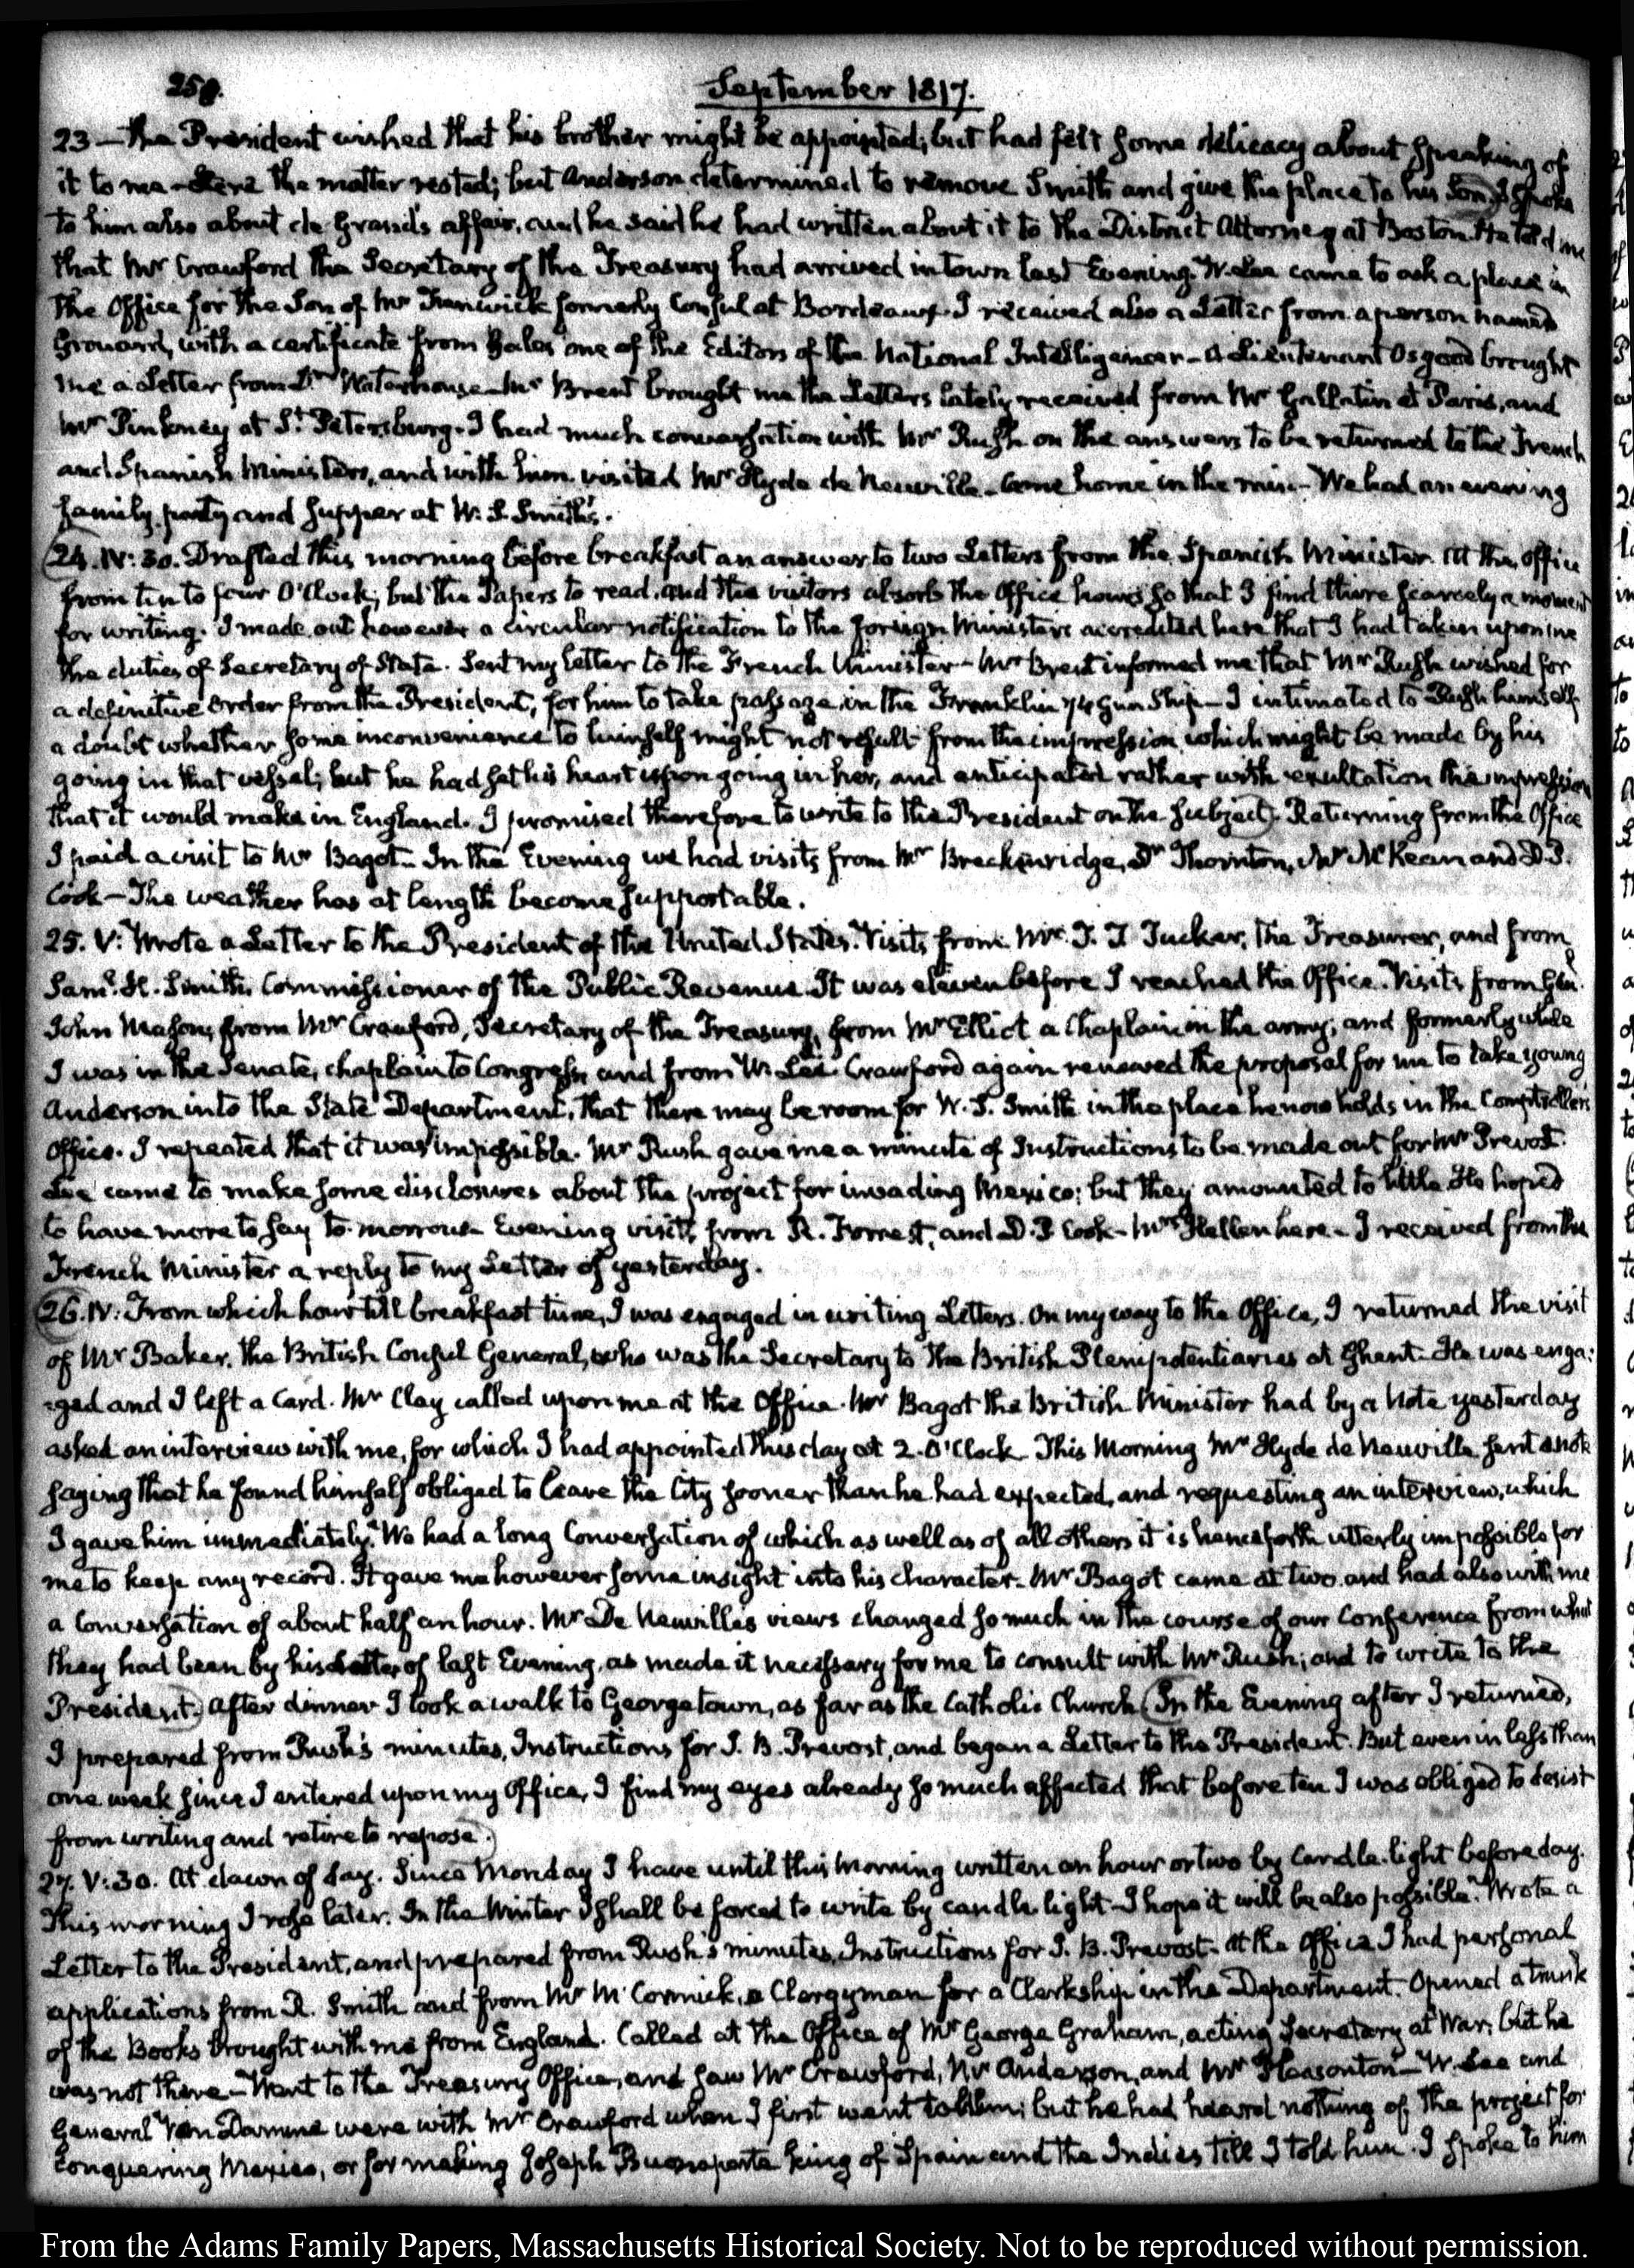 250.
September 1817.
23 — the President wished that his brother might be appointed; but had felt some delicacy about speaking of
it to me — Here the matter rested; but Anderson determined to remove Smith and give the place to his Son. I spoke
to him also about de Grand's affair, and he said he had written about it to the District Attorney at Boston. He told me
that Mr Crawford the Secretary of the Treasury had arrived in town last Evening. W. Lee came to ask a place in
the Office for the Son of Mr Fenwick formerly Consul at Bordeaux. I received also a Letter from a person named
Grouard, with a certificate from Gales one of the Editors of the National Intelligencer — A Lieutenant Osgood brought
me a Letter from Dr Waterhouse — Mr Brent brought me the Letters lately received from Mr Gallatin at Paris, and
Mr Pinkney at St. Petersburg. I had much conversation with Mr Rush on the answers to be returned to the French
and Spanish Ministers, and with him visited Mr Hyde de Neuville — Came home in the rain — We had an evening
family party and supper at W. S. Smith's.
24. IV: 30. Drafted this morning before breakfast an answer to two Letters from the Spanish Minister. At the office
from ten to four O'Clock; but the Papers to read, and the visitors absorb the Office hours so that I find there scarcely a moment
for writing. I made out however a circular notification to the foreign Ministers accredited here that I had taken upon me
the duties of Secretary of State. Sent my letter to the French Minister — Mr Brent informed me that Mr Rush wished for
a definitive order from the President, for him to take passage in the Franklin 74 gun Ship — I intimated to Rush himself
a doubt whether some inconvenience to himself might not result from the impression which might be made by his
going in that vessel; but he had set his heart upon going in her, and anticipated rather with exultation the impression
that it would make in England. I promised therefore to write to the President on the subject. Returning from the Office
I paid a visit to Mr Bagot. In the Evening we had visits from Mr Breckenridge, Dr Thornton, Mr McKean and D. P.
Cook — The weather has at length become supportable.
25. V. Wrote a Letter to the President of the United States. Visits from Mr. T. T Tucker, the Treasurer, and from
Saml. H. Smith, Commissioner of the Public Revenue. It was eleven before I reached the Office. Visits from Genl.
John Mason, from Mr Crawford, Secretary of the Treasury, from Mr Elliot a Chaplain in the army, and formerly while
I was in the Senate, chaplain to Congress, and from W. Lee. Crawford again renewed the proposal for me to take young
Anderson into the State Department, that there may be room for W. S. Smith in the place he now holds in the Comptroller's
Office. I repeated that it was impossible. Mr Rush gave me a minute of Instructions to be made out for Mr Prevost.
Lee came to make some disclosures about the project for invading Mexico; but they amounted to little. He hoped
to have more to say to-morrow. Evening visits from R. Forrest, and D. P Cook — Mrs Hellen here — I received from the
French Minister a reply to my Letter of yesterday.
26. IV: From which hour till breakfast time, I was engaged in writing Letters. On my way to the Office, I returned the visit
of Mr Baker, the British Consul General, who was the Secretary to the British Plenipotentiaries at Ghent. He was enga-
-ged and I left a Card. Mr Clay called upon me at the Office. Mr Bagot the British Minister had by a Note yesterday
asked an interview with me, for which I had appointed this day at 2. O'Clock. This Morning Mr Hyde de Neuville sent a note
saying that he found himself obliged to leave the City sooner than he had expected, and requesting an interview, which
I gave him immediately. We had a long Conversation of which as well as of all others it is henceforth utterly impossible for
me to keep any record. It gave me however some insight into his character. Mr Bagot came at two, and had also with me
a Conversation of about half an hour. Mr De Neuville's views changed so much in the course of our Conference from what
they had been by his Letter of last Evening, as made it necessary for me to consult with Mr Rush; and to write to the
President. After dinner I took a walk to Georgetown, as far as the Catholic Church. In the Evening after I returned,
I prepared from Rush's minutes, Instructions for J. B. Prevost, and began a Letter to the President. But even in less than
one week since I entered upon my Office, I find my eyes already so much affected that before ten I was obliged to desist
from writing and retire to repose.
27. V: 30. At dawn of day. Since Monday I have until this Morning written an hour or two by Candle-light before day.
This morning I rose later. In the Winter I shall be forced to write by candle light — I hope it will be also possible. Wrote a
Letter to the President, and prepared from Rush's minutes, Instructions for J. B. Prevost. At the Office I had personal
applications from R. Smith and from Mr McCormick, a Clergyman for a Clerkship in the Department. Opened a trunk
of the Books brought with me from England. Called at the Office of Mr George Graham, acting Secretary at War; but he
was not there — Went to the Treasury Office, and saw Mr Crawford, Mr Anderson, and Mr Pleasonton — W. Lee and
General Van Damme were with Mr Crawford when I first went to him; but he had heard nothing of the project for
conquering Mexico, or for making Joseph Buonaparte king of Spain and the Indies till I told him. I spoke to him
From the Adams Family Papers, Massachusetts Historical Society. Not to be reproduced without permission.